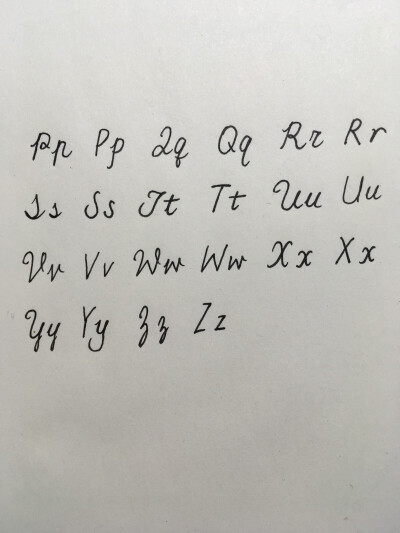 Pp Pp Qq Qq Rr Rr
Ss Ss Tt Tt Uu Uu
Vv Vv Ww Ww Xx Xx
Yy Yy Zz Zz